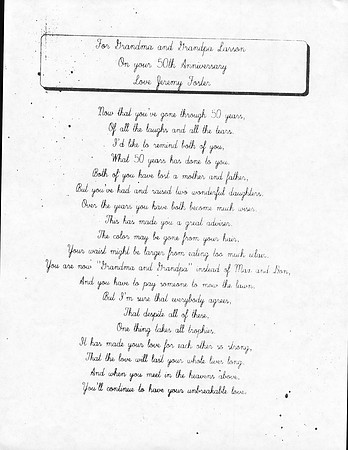 For Grandma and Grandpa Larson
On your 50th Anniversary
Love Jeremy Foster
Now that you've gone through 50 years,
Of all the laughs and all the tears.
I'd like to remind both of you,
What 50 years has done to you.
Both of you have lost a mother and father,
But you've had and raised two wonderful daughters.
Over the years you have both become much wiser.
This has made you a great adviser.
The color may be gone from your hair,
Your waist might be larger from eating too much
You are now "Grandma and Grandpa" instead of Max and
And you have to pay someone to mow the lawn.
But I'm sure that everybody agrees,
That despite all of these,
One thing takes all trophies.
It has made your love for each other so strong,
That the love will last your whole lives long.
And when you meet in the heavens above,
You'll continue to have your unbreakable love.